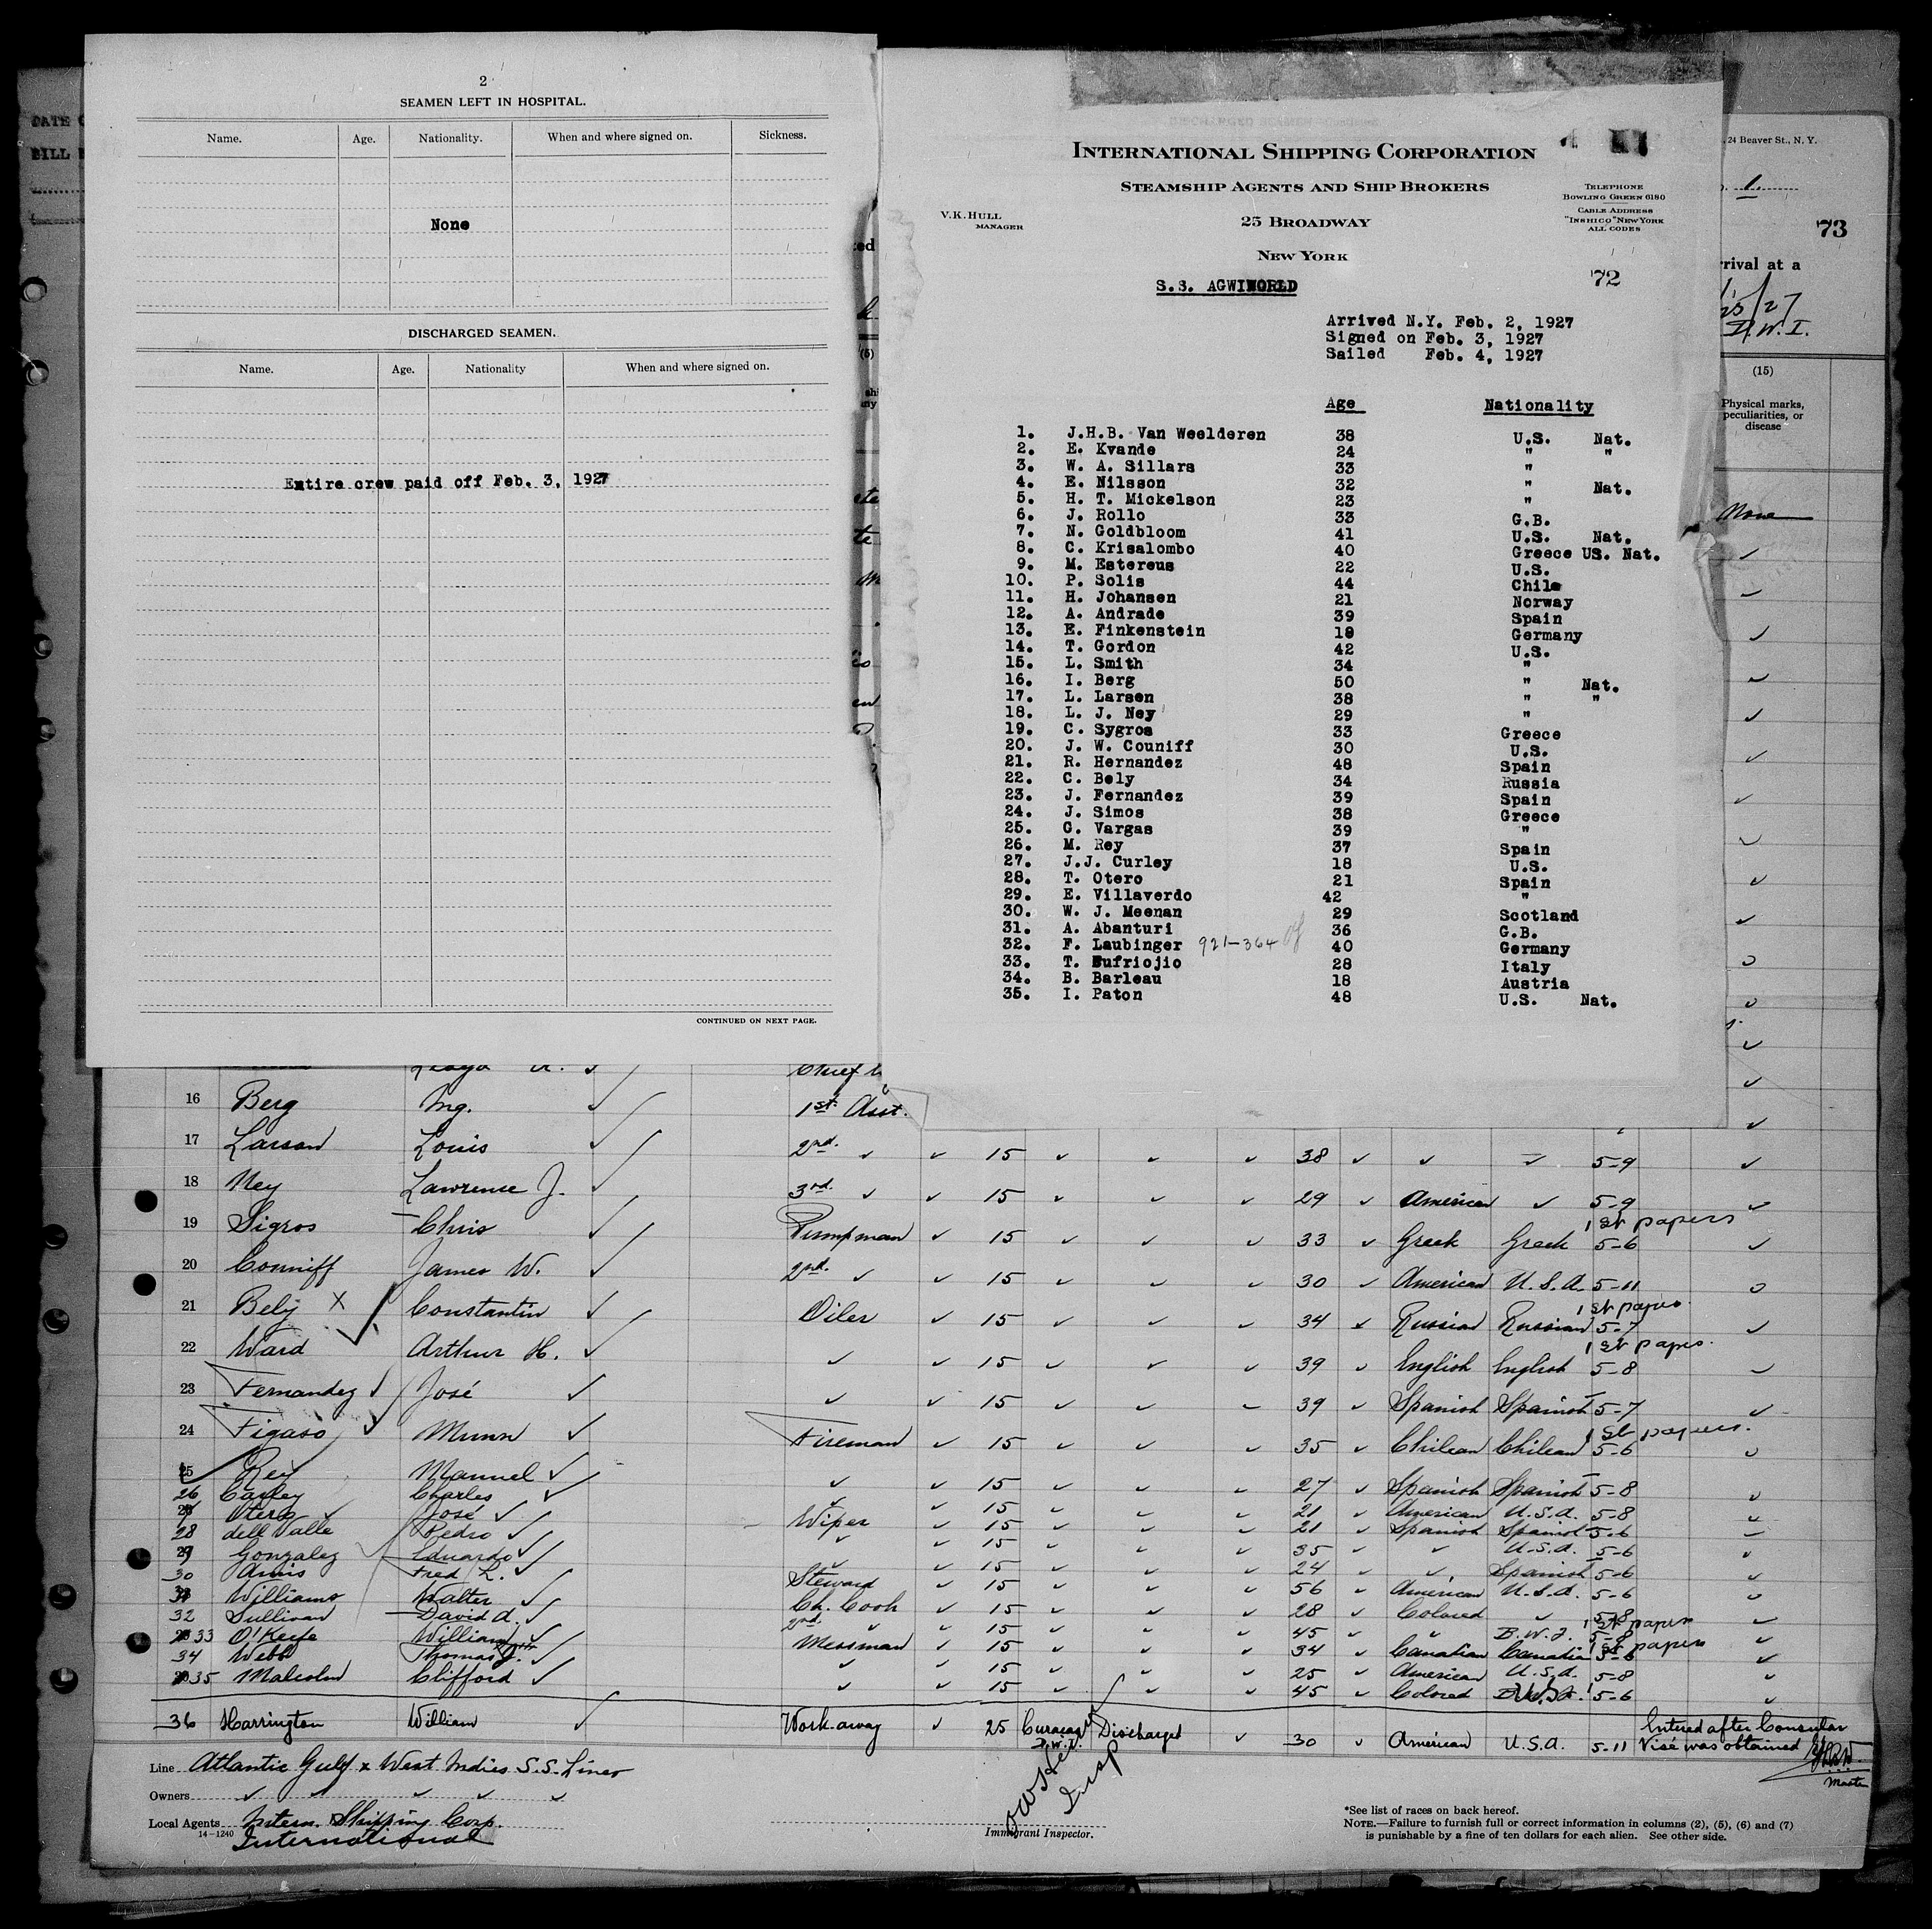 2
SEAMEN LEFT IN HOSPITAL.
Name. Age. Nationality. When and where signed on. Sickness.
None
DISCHARGED SEAMEN.
Name. Age. Nationality When and where signed on.
Entire crew paid off Feb. 3, 1927
CONTINUED ON NEXT PAGE.
INTERNATIONAL SHIPPING CORPORATION
STEAMSHIP AGENTS AND SHIP BROKERS
V.K. HULL
MANAGER
25 BROADWAY
NEW YORK
TELEPHONE
BOWLING GREEN 6180
CABLE ADDRESS
"INSHICO" NEW YORK
ALL CODES
72
S.S. AGWIWORLD
Arrived N.Y. Feb. 2, 1927
Signed on Feb. 3, 1927
Sailed Feb. 4, 1927
Age Nationality
1. J.H.B. Van Weelderen 38 U.S. Nat.
2. E. Kvande 24 " "
3. W. A. Sillars 33 "
4. E. Nilsson 32 " Nat.
5. H. T. Mickelson 23 "
6. J. Rollo 33 G.B.
7. N. Goldbloom 41 U.S. Nat.
8. C. Krisalombo 40 Greece US. Nat.
9. M. Estereus 22 U.S.
10. P. Solis 44 Chile
11. H. Johansen 21 Norway
12. A. Andrade 39 Spain
13. E. Finkenstein 19 Germany
14. T. Gordon 42 U.S.
15. L. Smith 34 "
16. I. Berg 50 " Nat.
17. L. Larsen 38 " "
18. L. J. Ney 29 "
19. C. Sygros 33 Greece
20. J. W. Couniff 30 U.S.
21. R. Hernandez 48 Spain
22. C. Bely 34 Russia
23. J. Fernandez 39 Spain
24. J. Simos 38 Greece
25. G. Vargas 39 "
26. M. Rey 37 Spain
27. J.J. Curley 18 U.S.
28. T. Otero 21 Spain
29. E. Villaverdo 42 "
30. W. J. Meenan 29 Scotland
31. A. Abanturi 36 G.B.
32. F. Laubinger 921-364 40 Germany
33. T. Eufriojio 28 Italy
34. B. Barleau 18 Austria
35. I. Paton 48 U.S. Nat.
, 24 Beaver St., N. Y.
1.
73
rrival at a
D.W.I.
(15)
Physical marks,
peculiarities, or
disease
None
16 Berg Ing. 1st Asst.
17 Larson Louis 2nd. 15 38 5-9
18 Ney Lawrence J. 3rd. 15 29 American 5-9
19 Sigros Chris Pumpman 15 33 Greek Greek 1st papers 5-6
20 Conniff James W. 2nd. 15 30 American U.S.A. 5-11
21 Bely X Constantin Oiler 15 34 Russian Russian 1st papes 5-7
22 Ward Arthur H. 15 39 English English 1st papes. 5-8
23 Fernandez José 15 39 Spanish Spanish 5-7
24 Figaso Munn Fireman 15 35 Chilean Chilean 1st papers. 5-6
25 Rey Manuel 15 27 Spanish Spanish 5-8
26 Carley Charles 15 21 American U.S.A. 5-8
Otero José Wiper 15 21 Spanish Spanish 5-6
28 dell Valle Pedro 15 35 U.S.A. 5-6
29 Gonzalez Eduardo 15 24 Spanish 5-6
30 Amis Fred L. Steward 15 56 American U.S.A. 5-6
Williams Walter Ch. Cook 15 28 Colored 5-8
32 Sullivan David A. 2nd. 15 45 B.W.I. 1st papers 5-8
33 O'Keefe William Messman 15 34 Canadian Canadian 1st papers 5-6
34 Webb Thomas 15 25 American U.S.A. 5-8
35 Malcolm Clifford 15 45 Colored 5-6
36 Harrington William Work-away 25 Curacao D.W.I. Discharged 30 American U.S.A. 5-11 Entered after Consular
Visé was obtained
Master
Line Atlantic Gulf & West Indies S.S. Lines
Owners
Local Agents Intern. Shipping Corp.
14-1240 International
Insp
Immigrant Inspector.
*See list of races on back hereof.
NOTE.—Failure to furnish full or correct information in columns (2), (5), (6) and (7)
is punishable by a fine of ten dollars for each alien. See other side.